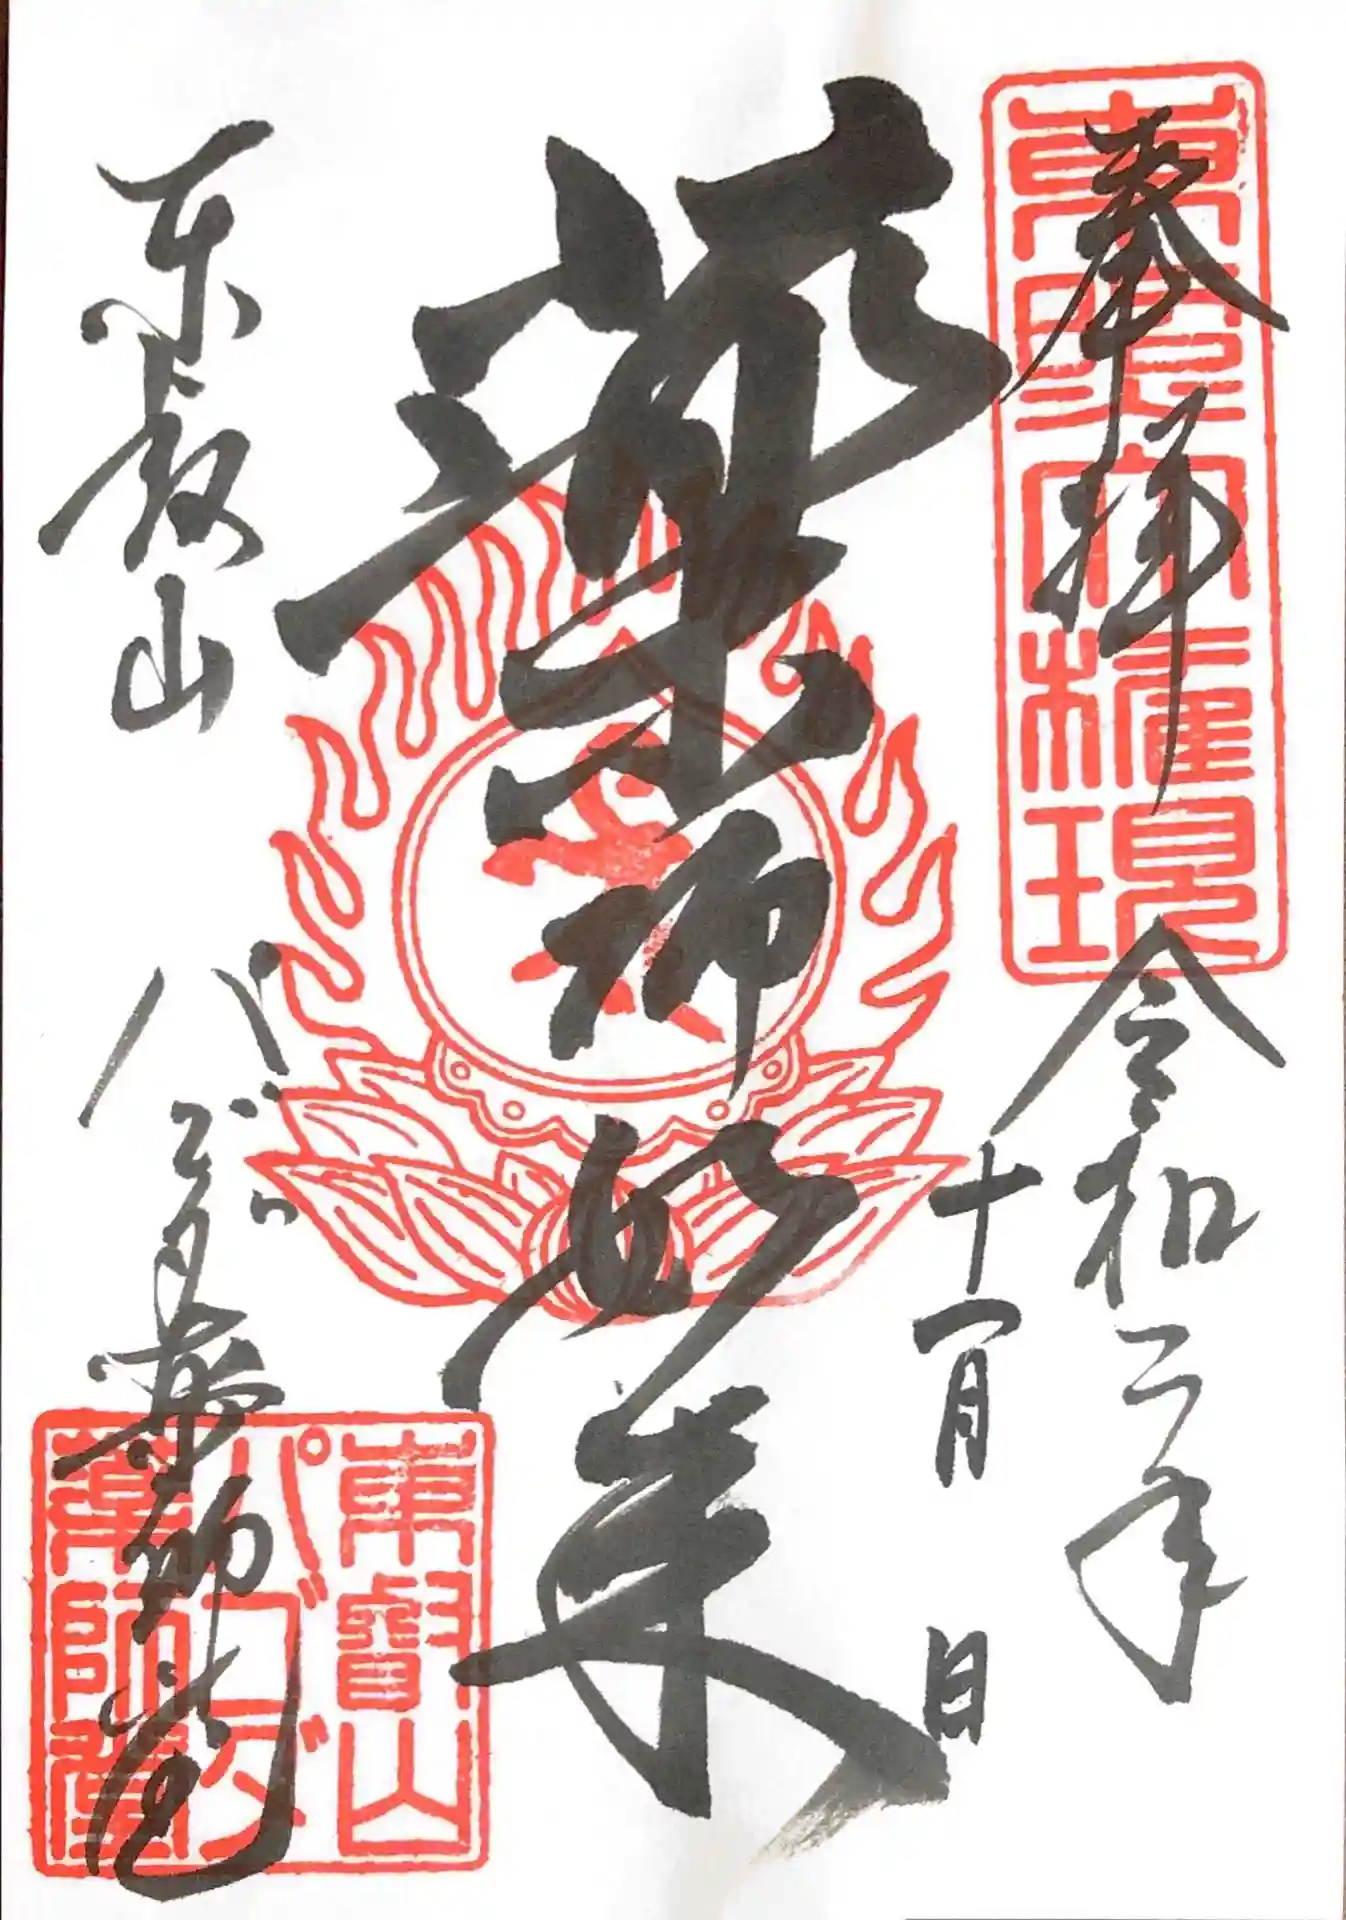 奉拝
東照大権現
令和二年
十一月 日
薬師如来
東叡山
パゴダ薬師堂
東叡山
パゴダ
薬師堂